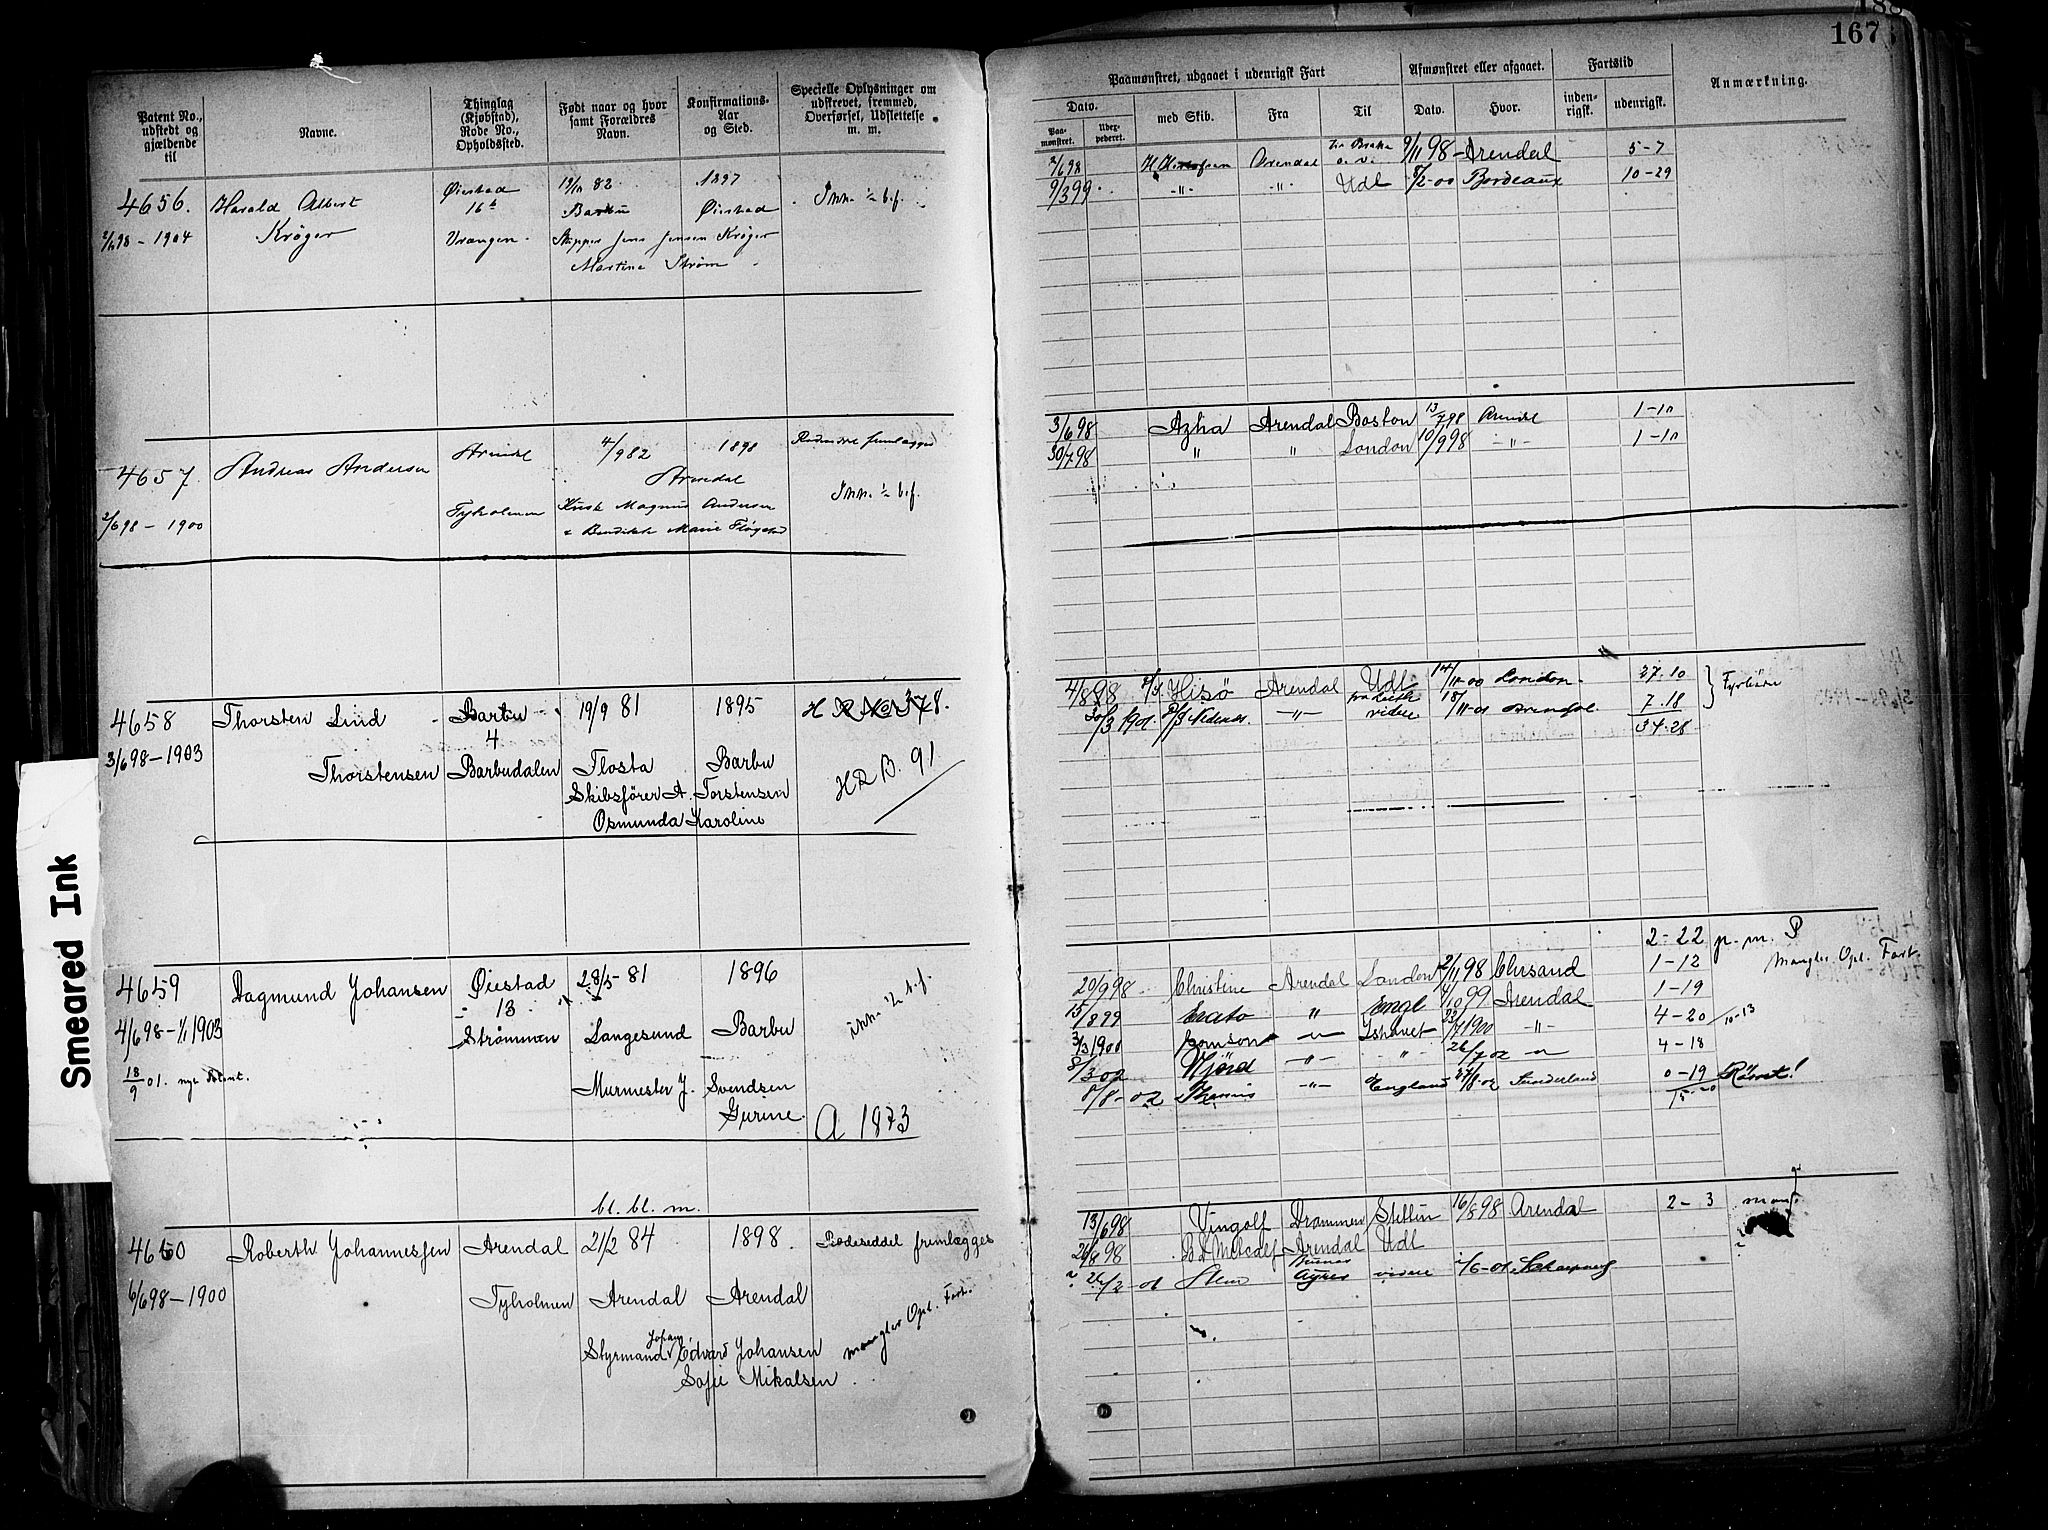 188
167
Patent No., udstedt og gjældende til
Navne.
Thinglag (Kjøbstad), Rode No., Opholdssted.
Født naar og hvor samt Forældres Navn.
Konfirmations-Aar og Sted.
Specielle Oplysninger om udskrevet, fremmed, Overførsel, Udslettelse m. m.
Paamønstret, udgaaet i udenrigsk Fart
Afmønstret eller afgaaet.
Fartstid
Anmærkning.
Dato.
Paamønstret.
med Skib.
Fra
Til
Dato.
Hvor.
indenrigsk.
udenrigsk.
4656. Harald Albert Øiestad 82 1897
Krøger 16 Barbu Øiestad
2/6 98 – 1904 Vrangen Skipper Jens Jensen Krøger
Martine Strøm
2/6 98 Arendal 9/11 98 Arendal 5-7
9/3 99 -"- -"- Udl 8/2-00 Bordeaux 10-29
4657. Andreas Andersen Arendal 4/9 82 1898
Arendal
2/6 98 – 1900 Tyholmen Magnus Andersen
Marie
3/6 98 Azha Arendal Boston 13/7 98 Arendal 1-10
30/7 98 " " London 10/9 98 -"- 1-10
4658 Thorsten Lind Barbu 19/9 81 1895 378.
4
3/6 98 – 1903 Thorstensen Barbudalen Flosta Barbu H R B. 91
Skibsfører A. Torstensen
Osmunda Karoline
4/8 98 Hisø Arendal Udl 14/11-00 London 27.10
30/3 1901 Nedenes -"- videre 18/11-01 Arendal 7.18 Fyrbøder
34-28
4659 Dagmund Johansen Øiestad 28/5-81 1896
13
4/6 98 – 1/1 1903 Strømmen Langesund Barbu
18/9 01. nye Patent. Murmester J. Svendsen
Gurine A 1873
2-22 p. m. P
20/9 98 Christine Arendal London 2/11 98 Chrsand 1-12 Mangler Opl. Fart.
15/8 99 Erato " Engl 4/10 99 Arendal 1-19
3/3 1900 Ishavet 23/7 1900 -"- 4-20 10-13
8/3 02 Hjørd -"- " 26/7 02 4-18
8/8-02 -"- England 27/8-02 Sunderland 0-19 Rømt!
15-20
bl. bl. m.
4660 Roberth Johannessen Arendal 21/2 84 1898. Rodeseddel fremlægges
6/6 98 – 1900 Tyholmen Arendal Arendal
Johan
Styrmand Edvard Johansen mangler Opl. Fart.
Sofie Mikalsen
13/6 98 Vingolf Drammen Stettin 16/8 98 Arendal 2-3
26/8 98 Arendal Udl
26/2-01 Buenos Ayres videre 1/6-01
Smeared Ink